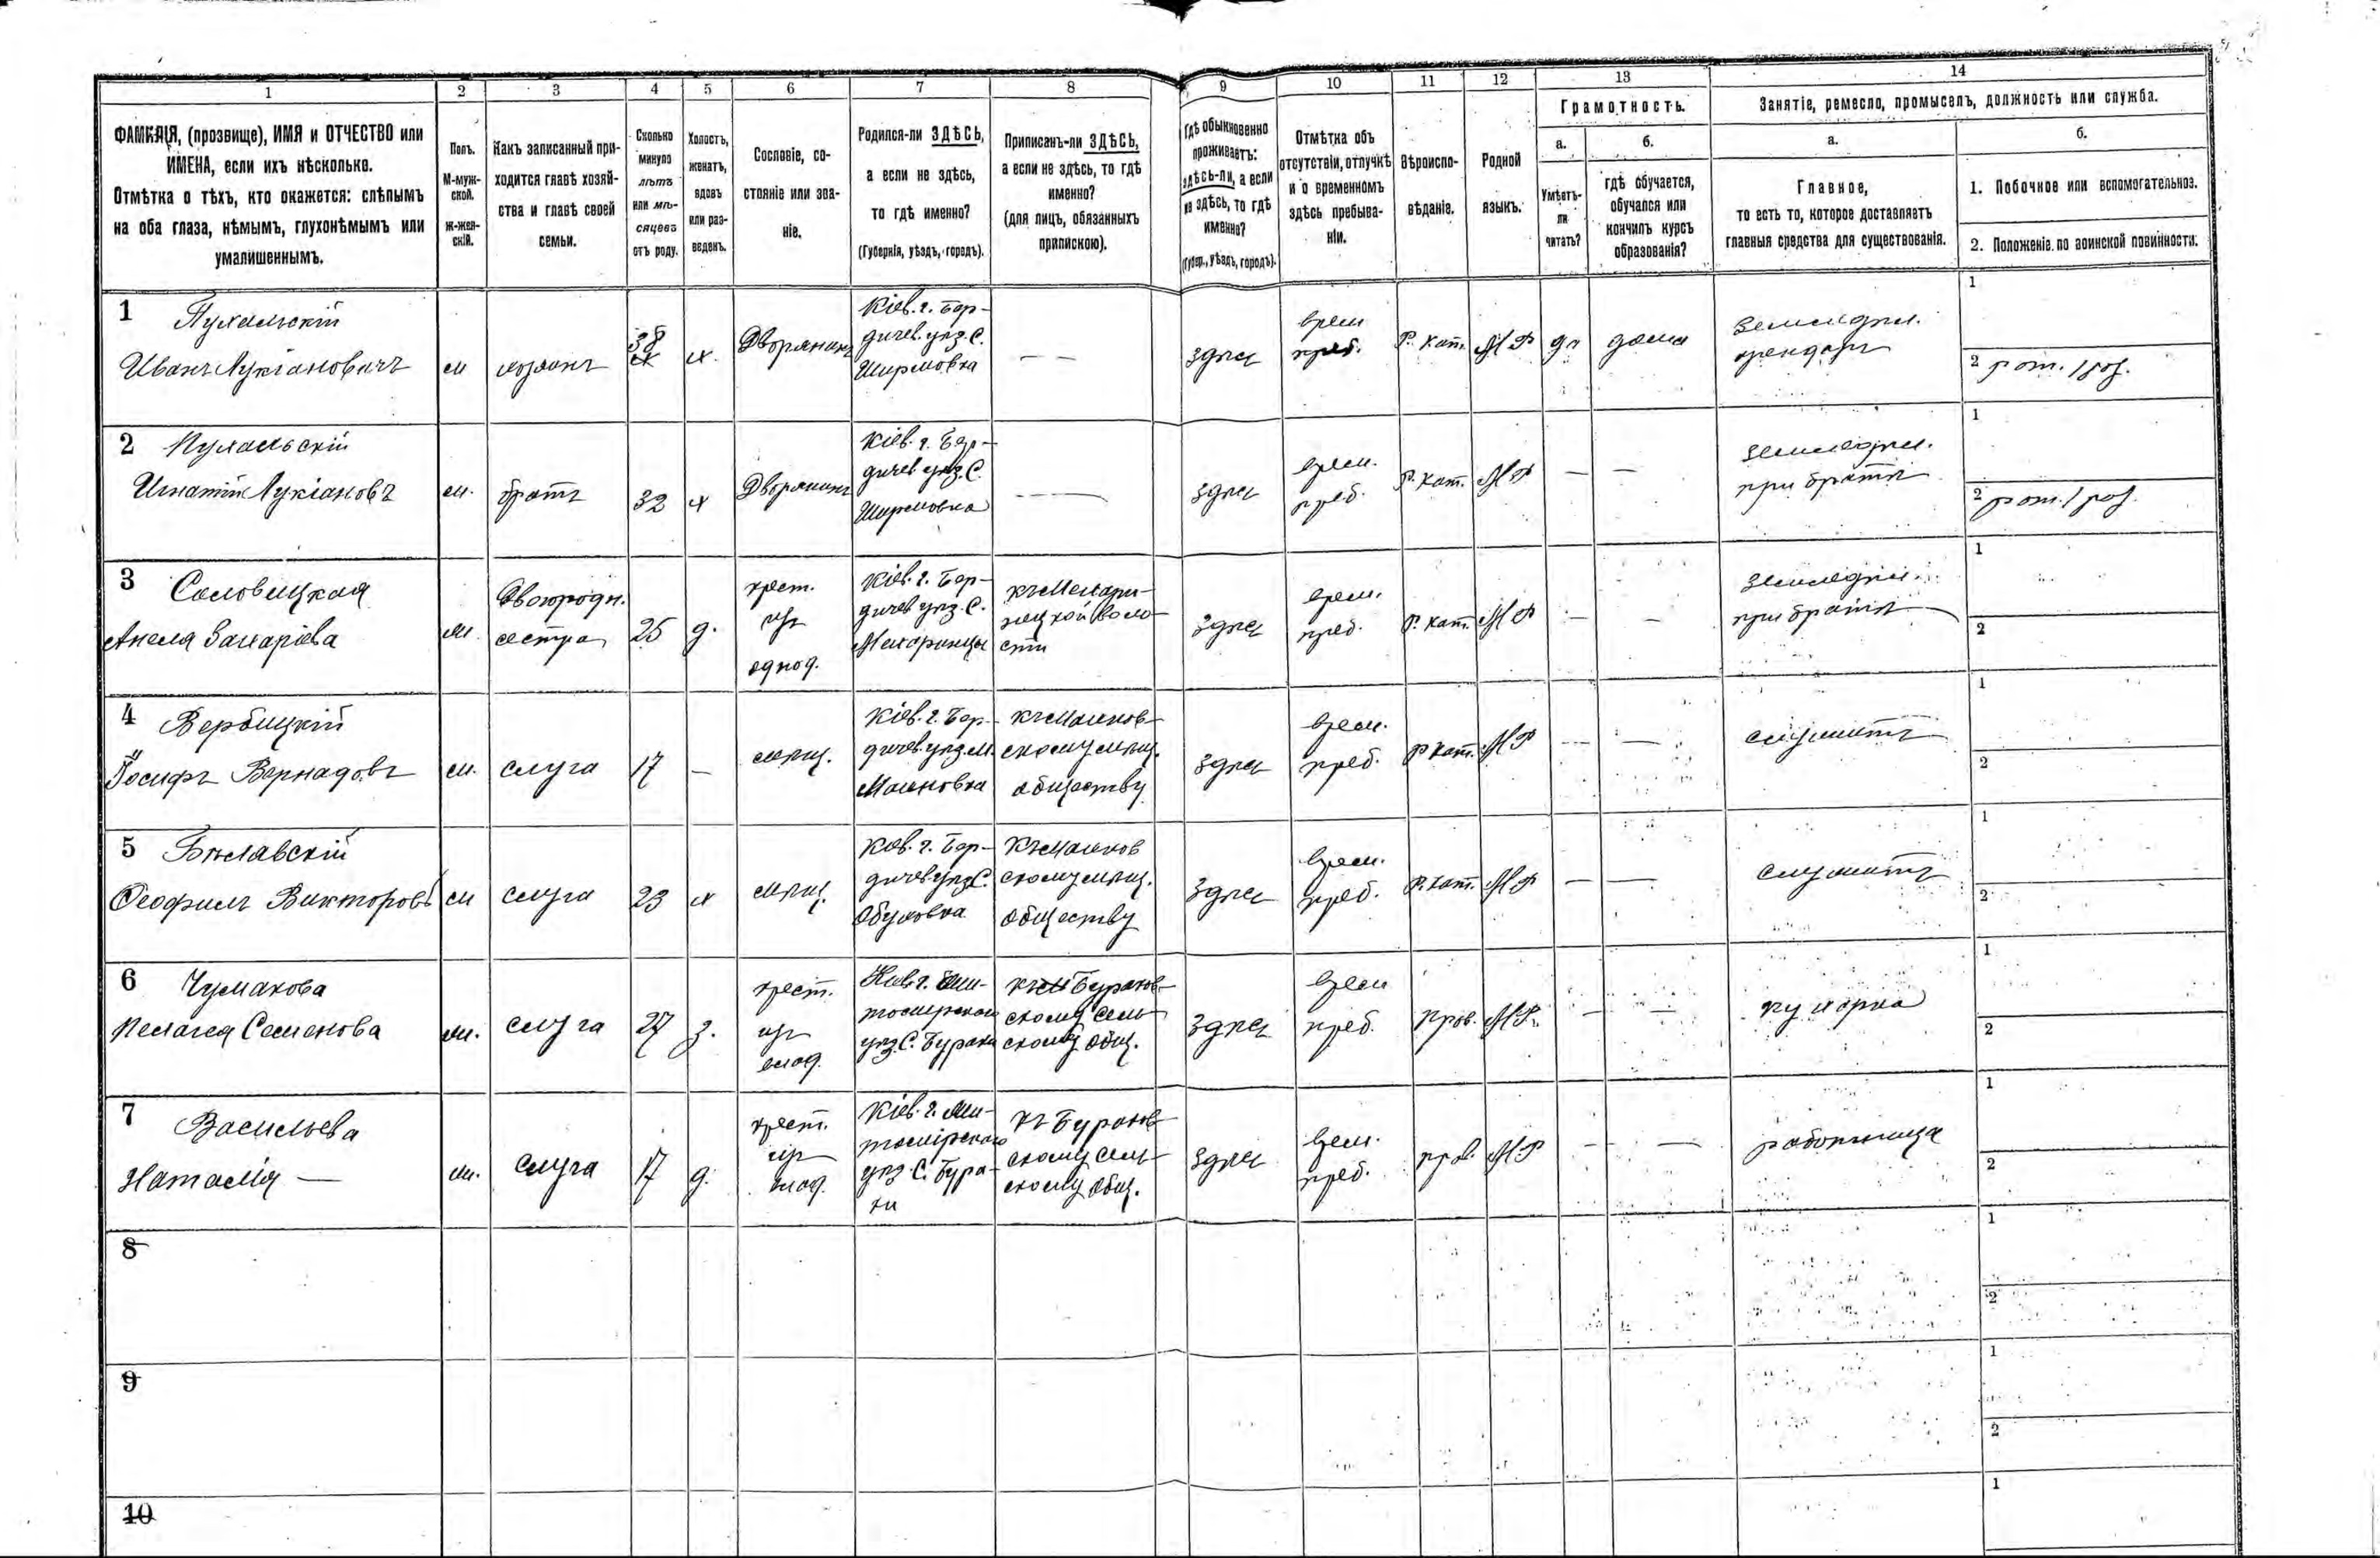 1 2 3 4 5 6 7 8 9 10 11 12 13 14
ФАМИЛІЯ, (прозвище), ИМЯ и ОТЧЕСТВО или
ИМЕНА, если ихъ нѣсколько.
Отмѣтка о тѣхъ, кто окажется: слѣпымъ
на оба глаза, нѣмымъ, глухонѣмымъ или
умалишеннымъ.
Полъ.
М-муж-
ской.
Ж-жен-
скій.
Какъ записанный при-
ходится главѣ хозяй-
ства и главѣ своей
семьи.
Сколько
минуло
лѣтъ
или мѣ-
сяцевъ
отъ роду.
Холостъ,
женатъ,
вдовъ
или раз-
веденъ.
Сословіе, со-
стояніе или зва-
ніе.
Родился-ли ЗДѢСЬ,
а если не здѣсь,
то гдѣ именно?
(Губернія, уѣздъ, городъ).
Приписанъ-ли ЗДѢСЬ,
а если не здѣсь, то гдѣ
именно?
(для лицъ, обязанныхъ
припискою).
Гдѣ обыкновенно
проживаетъ:
здѣсь-ли, а если
не здѣсь, то гдѣ
именно?
(Губер., уѣздъ, городъ).
Отмѣтка объ
отсутствіи, отлучкѣ
и о временномъ
здѣсь пребыва-
ніи.
Вѣроиспо-
вѣданіе.
Родной
языкъ.
Грамотность.
а.
Умѣетъ-
ли
читать?
б.
гдѣ обучается,
обучался или
кончилъ курсъ
образованія?
Занятіе, ремесло, промыселъ, должность или служба.
а.
Главное,
то есть то, которое доставляетъ
главныя средства для существованія.
б.
1. Побочное или вспомогательное.
2. Положеніе по воинской повинности.
1 Пухальскій
Иванъ Лукіановичъ
м
хозяинъ
38
х.
Дворянинъ
Кіев. г. Бер-
дичев. уѣз. С.
Ширмовка
— —
здѣсь
врем
преб.
Р. кат.
да
дома
земледѣл.
арендаръ
1
2
2 Пухальскій
Игнатій Лукіановъ
м.
братъ
32
х
Дворянинъ
Кіев. г. Бер-
дичев уѣз. С.
Ширмовка
здѣсь
врем.
преб.
Р. кат.
— —
земледѣл.
при братѣ
1
2
3 Соловицкая
Анеля Захаріева
ж.
двоюродн.
сестра
25
д.
крест.
изъ
однод.
Кіев. г. Бер-
дичев уѣз. С.
Махаринцы
къ Махари-
нецкой воло-
сти
здѣсь
врем.
преб.
Р. кат.
— —
земледѣл.
при братѣ
1
2
4 Вербицкій
Іосифъ Вернадовъ
м.
слуга
17
—
мѣщ.
Кіев. г. Бер-
дичев. уѣз. м.
Махновка
къ Махнов-
скому мѣщ.
обществу
здѣсь
врем.
преб.
Р кат.
— —
служитъ
1
2
5 Бѣлавскій
Ѳеофилъ Викторовъ
м
слуга
23
х
мѣщ.
Кіев. г. Бер-
дичев. уѣз. С.
Обуховка
Къ Махнов
скому мѣщ.
обществу
здѣсь
врем.
преб.
Р. кат.
— —
служитъ
1
2
6 Чумакова
Пелагея Семенова
ж.
слуга
27
з.
крест.
изъ
Кіев. г. Жи-
томирскаго
уѣз. С. Бураки
къ Бураков-
скому сель-
скому общ.
здѣсь
врем
преб.
Прав.
— —
кухарка
1
2
7 Васильева
Наталія —
ж.
слуга
17
д.
крест.
изъ
Кіев. г. Жи-
томірскаго
уѣз. С. Бура-
ки
къ Бураков-
скому сель-
скому общ.
здѣсь
врем.
преб.
прав.
— —
работница
1
2
8
1
2
9
1
2
10
1